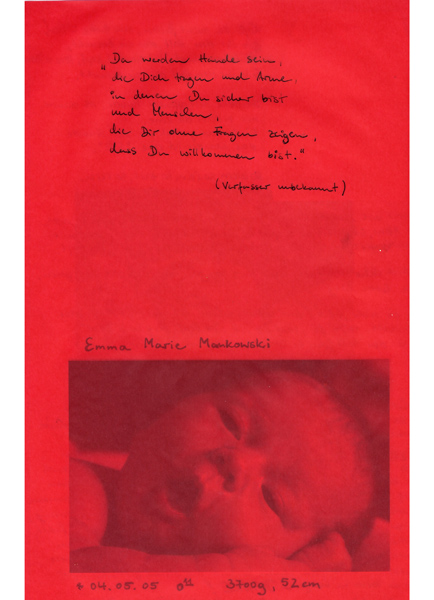 "Da werden Hände sein,
die Dich tragen und Arme,
in denen Du sicher bist
und Menschen,
die Dir ohne Fragen zeigen,
dass Du willkommen bist."
(Verfasser unbekannt)
Emma Marie Mankowski
* 04.05.05 0¹¹ 3700g, 52cm